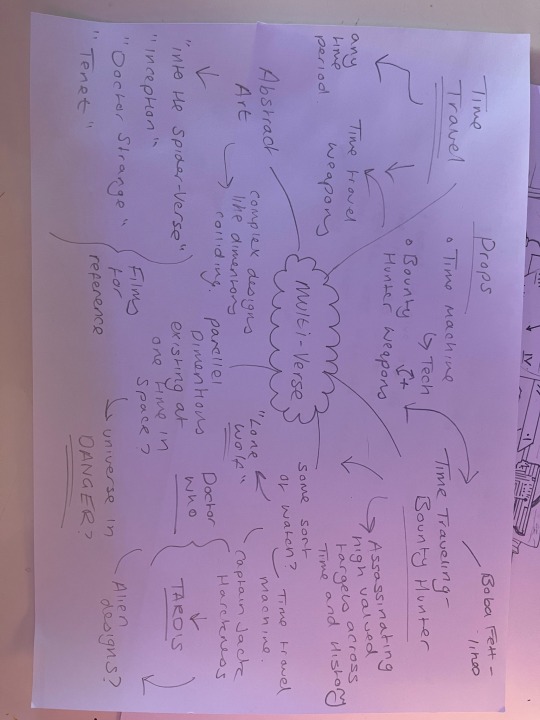 Time
Travel
any
time
period
Time travel
weapons
Abstract
Art
complex designs
like dimentions
colliding.
"Into the Spider-Verse"
"Inception"
"Doctor Strange"
"Tenet"
Films
for
reference
Props
Time Machine
Tech
Bounty
Hunter Weapons
Multi-Verse
parallel
Dimentions
existing at
one time in
space?
universe in
DANGER?
Time Traveling-
Bounty Hunter
Boba Fett-
Assassinating
high valued
targets across
Time and History
"Lone
Wolf"
Some sort
of watch?
Time travel
machine.
Captain Jack
Harkness
Doctor
Who
TARDIS
Alien
designs?